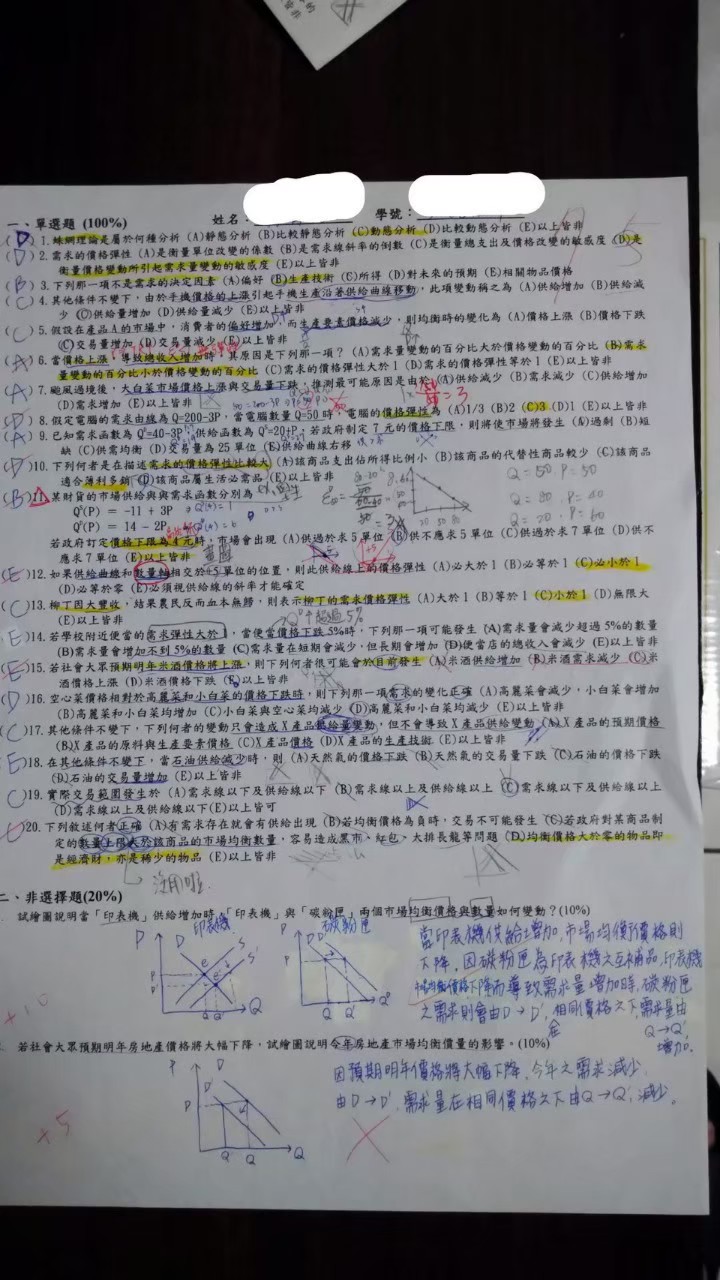 姓名： 學號：
一、單選題 (100%)
(D) 1. 蛛網理論是屬於何種分析 (A)靜態分析 (B)比較靜態分析 (C)動態分析 (D)比較動態分析 (E)以上皆非
(D) 2. 需求的價格彈性 (A)是衡量單位改變的係數 (B)是需求線斜率的倒數 (C)是衡量總支出及價格改變的敏感度 (D)是
衡量價格變動所引起需求量變動的敏感度 (E)以上皆非
(B) 3. 下列那一項不是需求的決定因素 (A)偏好 (B)生產技術 (C)所得 (D)對未來的預期 (E)相關物品價格
(C) 4. 其他條件不變下，由於手機價格的上漲引起手機生產沿著供給曲線移動，此項變動稱之為 (A)供給增加 (B)供給減
少 (C)供給量增加 (D)供給量減少 (E)以上皆非
(C) 5. 假設在產品A的市場中，消費者的偏好增加，而生產要素價格減少，則均衡時的變化為 (A)價格上漲 (B)價格下跌
(C)交易量增加 (D)交易量減少 (E)以上皆非
(A) 6. 當價格上漲，導致總收入增加時，其原因是下列那一項？ (A)需求量變動的百分比大於價格變動的百分比 (B)需求
量變動的百分比小於價格變動的百分比 (C)需求的價格彈性大於1 (D)需求的價格彈性等於1 (E)以上皆非
(A) 7. 颱風過境後，大白菜市場價格上漲與交易量下跌，推測最可能原因是由於 (A)供給減少 (B)需求減少 (C)供給增加
(D)需求增加 (E)以上皆非
= 3
(D) 8. 假定電腦的需求由線為 Q=200-3P，當電腦數量Q=50時，電腦的價格彈性為 (A)1/3 (B)2 (C)3 (D)1 (E)以上皆非
(A) 9. 已知需求函數為 Q=40-3P，供給函數為 Q=20+P，若政府制定 7 元的價格下限，則將使市場發生 (A)過剩 (B)短
缺 (C)供需均衡 (D)交易量為 25 單位 (E)供給曲線右移
(D) 10. 下列何者是在描述需求的價格彈性比較大 (A)該商品支出佔所得比例小 (B)該商品的代替性商品較少 (C)該商品
適合薄利多銷 (D)該商品屬生活必需品 (E)以上皆非
Q = 50, P = 50
(B) 11. 某財貨的市場供給與與需求函數分別為
Q(P) = -11 + 3P
Q = 80, P = 40
Q(P) = 14 - 2P
Q = 20, P = 60
若政府訂定價格下限為4元時，市場會出現 (A)供過於求5單位 (B)供不應求5單位 (C)供過於求7單位 (D)供不
應求7單位 (E)以上皆非
(E) 12. 如果供給曲線和數量軸相交於+5單位的位置，則此供給線上的價格彈性 (A)必大於1 (B)必等於1 (C)必小於1
(D)必等於零 (E)必須視供給線的斜率才能確定
(C) 13. 柳丁因大豐收，結果農民反而血本無歸，則表示柳丁的需求價格彈性 (A)大於1 (B)等於1 (C)小於1 (D)無限大
(E)以上皆非
(E) 14. 若學校附近便當的需求彈性大於1，當便當價格下跌5%時，下列那一項可能發生 (A)需求量會減少超過5%的數量
(B)需求量會增加不到5%的數量 (C)需求量在短期會減少，但長期會增加 (D)便當店的總收入會減少 (E)以上皆非
(E) 15. 若社會大眾預期明年米酒價格將上漲，則下列何者很可能會於目前發生 (A)米酒供給增加 (B)米酒需求減少 (C)米
酒價格上漲 (D)米酒價格下跌 (E)以上皆非
(D) 16. 空心菜價格相對於高麗菜和小白菜的價格下跌時，則下列那一項需求的變化正確 (A)高麗菜會減少，小白菜會增加
(B)高麗菜和小白菜均增加 (C)小白菜與空心菜均減少 (D)高麗菜和小白菜均減少 (E)以上皆非
(C) 17. 其他條件不變下，下列何者的變動只會造成X產品供給量變動，但不會導致X產品供給變動 (A)X產品的預期價格
(B)X產品的原料與生產要素價格 (C)X產品價格 (D)X產品的生產技術 (E)以上皆非
(E) 18. 在其他條件不變下，當石油供給減少時，則 (A)天然氣的價格下跌 (B)天然氣的交易量下跌 (C)石油的價格下跌
(D)石油的交易量增加 (E)以上皆非
(C) 19. 實際交易範圍發生於 (A)需求線以下及供給線以下 (B)需求線以上及供給線以上 (C)需求線以下及供給線以上
(D)需求線以上及供給線以下(E)以上皆可
20. 下列敘述何者正確 (A)有需求存在就會有供給出現 (B)若均衡價格為負時，交易不可能發生 (C)若政府對某商品制
定的數量上限大於該商品的市場均衡數量，容易造成黑市、紅包、大排長龍等問題 (D)均衡價格大於零的物品即
是經濟財，亦是稀少的物品 (E)以上皆非
沒用啦
二、非選擇題(20%)
試繪圖說明當「印表機」供給增加時，「印表機」與「碳粉匣」兩個市場均衡價格與數量如何變動？(10%)
印表機
碳粉匣
P D S S' Q
P D D' Q
當印表機供給增加，市場均衡價格則
下降，因碳粉匣為印表機之互補品，印表機
均衡價格下降而導致需求量增加時，碳粉匣
之需求則會由D→D'，相同價格之下，需求量由
Q→Q'，
增加。
+10
若社會大眾預期明年房地產價格將大幅下降，試繪圖說明今年房地產市場均衡價量的影響。(10%)
P D' D Q
因預期明年價格將大幅下降，今年之需求減少，
由D→D'，需求量在相同價格之下由Q→Q'，減少。
+5